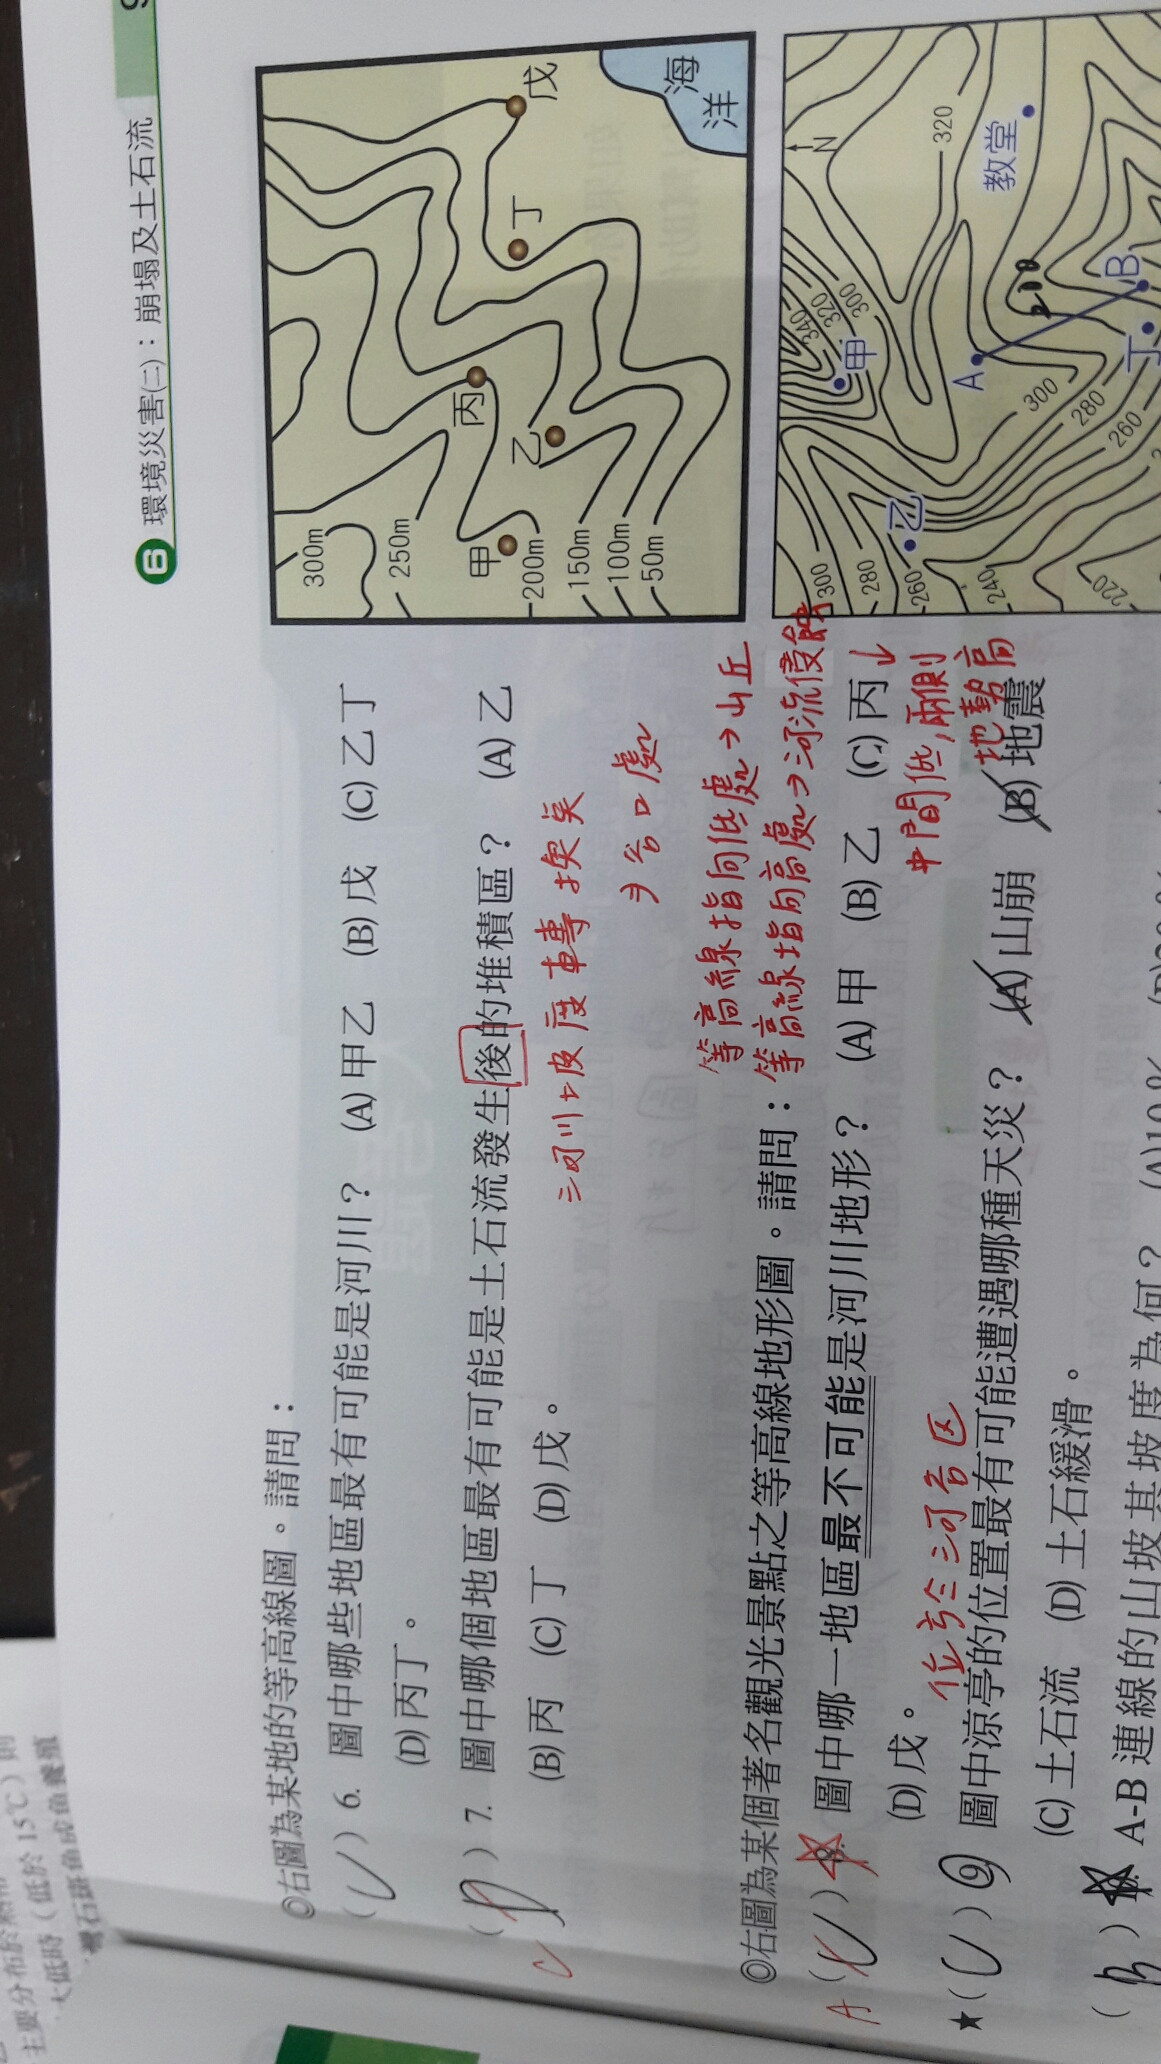 6 環境災害(二)：崩塌及土石流
◎右圖為某地的等高線圖。請問：
( C ) 6. 圖中哪些地區最有可能是河川？ (A)甲乙 (B)戊 (C)乙丁
(D)丙丁。
( D ) 7. 圖中哪個地區最有可能是土石流發生後的堆積區？ (A)乙
C
(B)丙 (C)丁 (D)戊。
→谷口處
300m
250m
200m
150m
100m
50m
甲
乙
丙
丁
戊
海洋
等高線指向低處→山丘
等高線指向高處→河流侵蝕
◎右圖為某個著名觀光景點之等高線地形圖。請問：
A ( C ) 8. 圖中哪一地區最不可能是河川地形？ (A)甲 (B)乙 (C)丙
(D)戊。
↓
中間低，兩側
地勢高
★( C ) 9 圖中涼亭的位置最有可能遭遇哪種天災？ (A)山崩 (B)地震
(C)土石流 (D)土石緩滑。
A-B 連線的山坡其坡度為何？
N
320
教堂
340
320
300
甲
A
B
210
丁
乙
300
280
260
300
280
260
240
220
主要分布於
(低於15℃)則